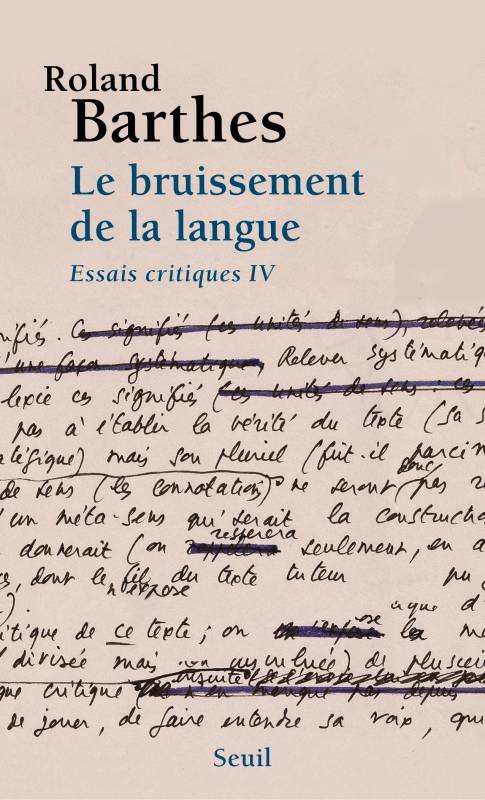 Roland
Barthes
Le bruissement
de la langue
Essais critiques IV
nifiés. Ces signifiés (ces unités de sens), relevés
d'une façon systématique, Relever systématiq
lexie ces signifiés (ces unités de sens : ces
pas à établir la vérité du texte (sa s
atégique) mais son pluriel (fût-il parcim
donc
de sens (les connotations) ne seront pas
d'un méta-sens qu'serait la constructio
respectera
donnerait (on seulement, en a
, dont le fil du texte tuteur
n'expose
itique de ce texte ; on les
divisée mais de plusieu
que critique
de jouer, de faire entendre sa voix, qu
Seuil